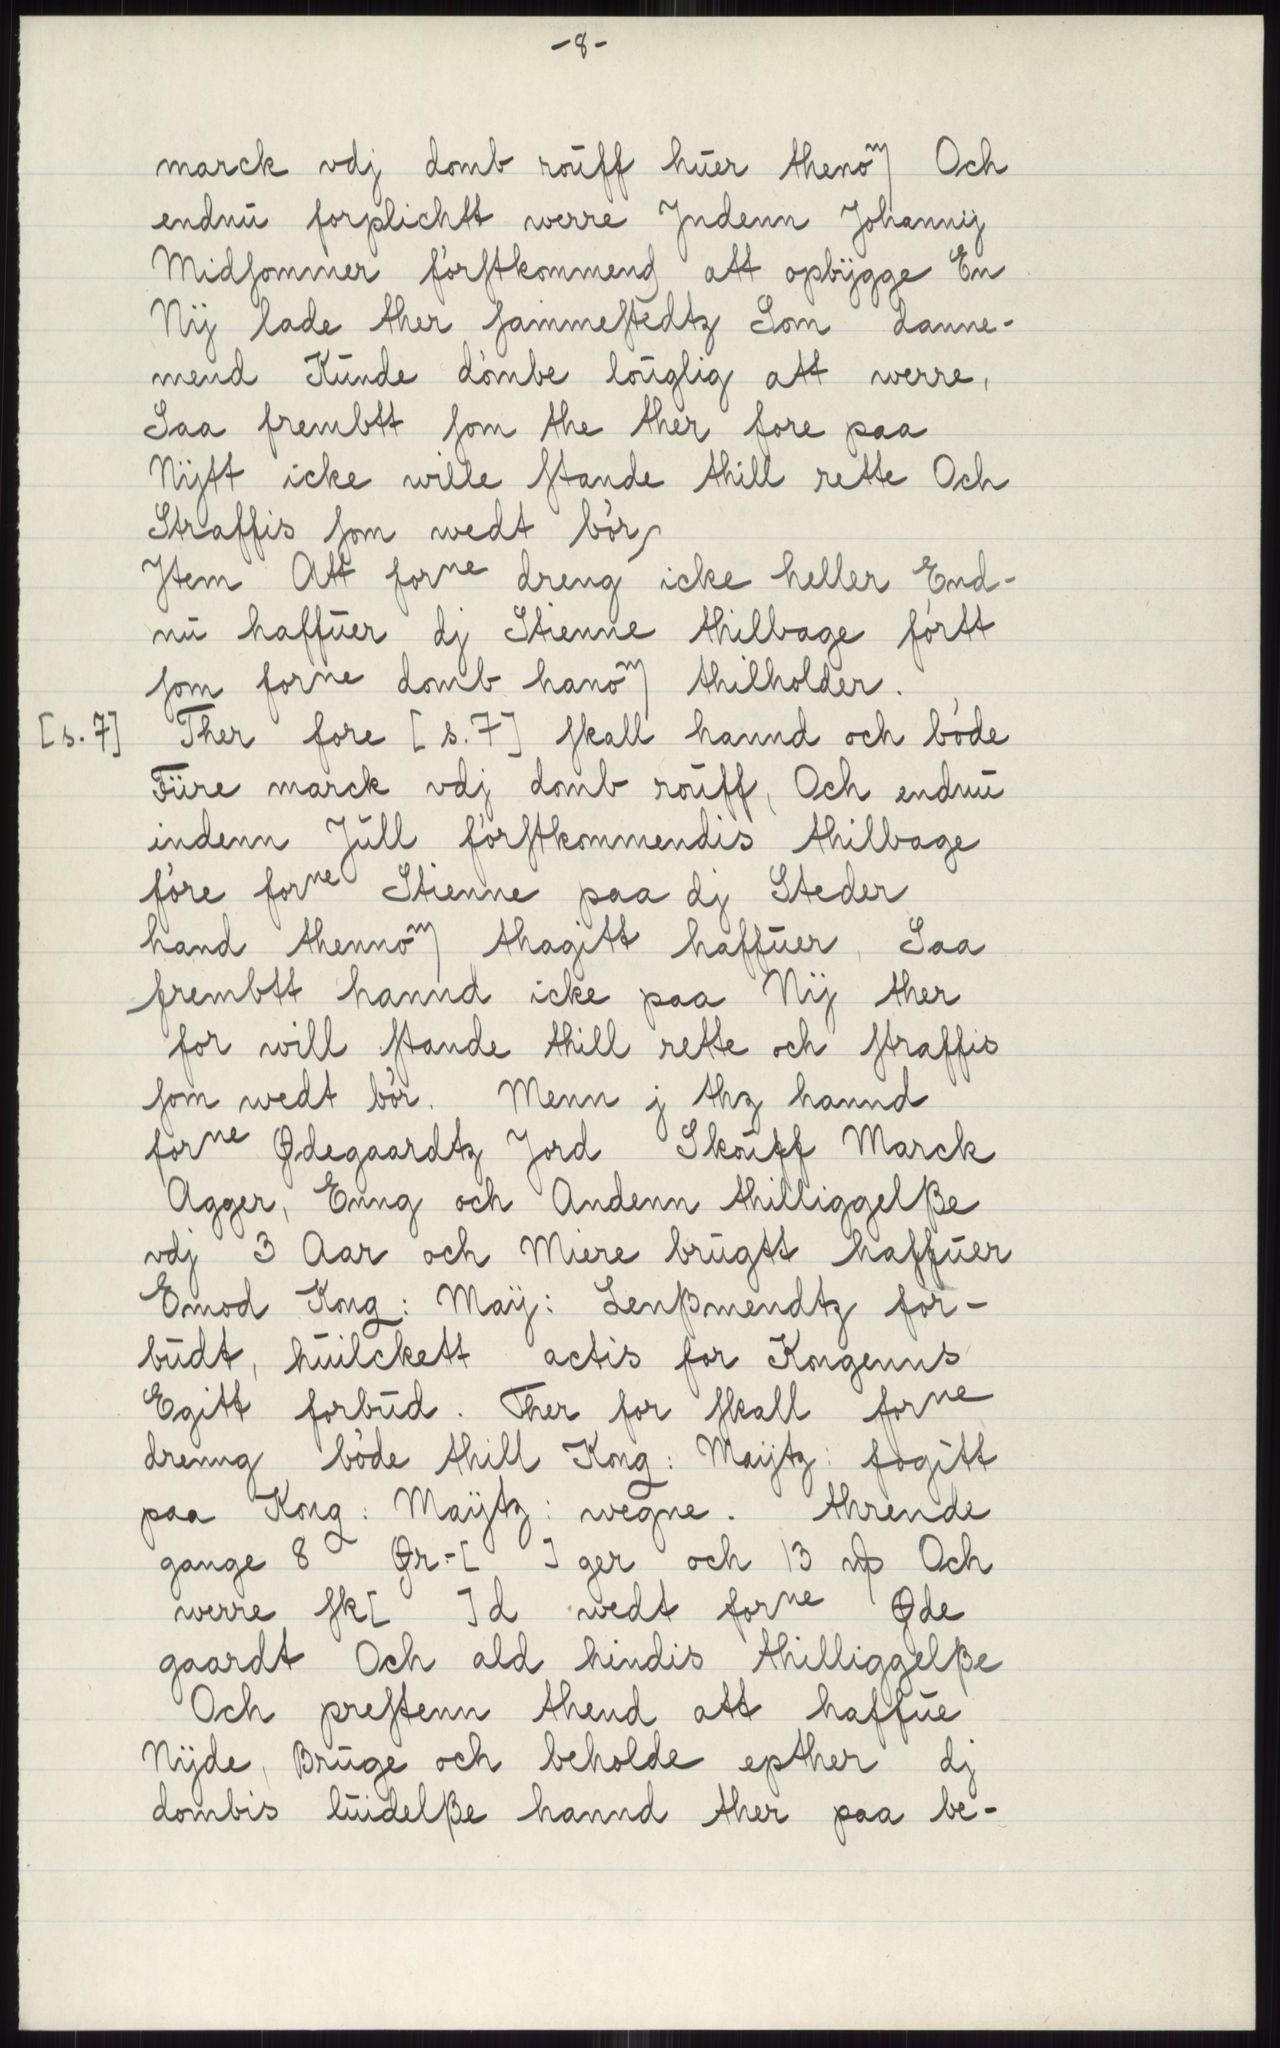 -8-
marck vdj domb roūff hūer thenom̄ Och
endnū forplichtt werre Jndenn Johannij
Midsommer fórstkommend att opbÿgge En
Nÿ lade ther sammestedtz Som danne-
mend Kūnde dómbe loūglig att werre,
Saa frembtt som the ther fore paa
Nÿtt icke wille stande thill rette Och
Straffis som wedt bór,
Jtem Att forne dreng icke heller End-
nū haffūer dj Stienne thilbage fórtt
som forne domb hanom̄ thilholder.
[s. 7] Ther fore [s. 7] skall hannd och bóde
Fÿre marck vdj domb roūff, Och endnū
indenn Jūll fórstkommendis thilbage
fóre forne Stienne paa dj Steder
hand thennom̄ thagitt haffūer, Saa
frembtt hannd icke paa Nÿ ther
for will stande thill rette och straffis
som wedt bór. Menn j thz hannd
forne Ødegaardtz Jord Skoūff Marck
Agger, Enng och Andenn thilliggelße
vdj 3 Aar och Miere brūgtt haffūer
Emod Kong: Maÿ: Lenßmendtz for-
būdt, hūilckett actis for Kongenns
Egitt forbūd. Ther for skall forne
drenng bóde thill Kong: Maÿtz: fogitt
paa Kong: Maÿtz: wegne. thrende
gange 8 Ør-[ ] ger och 13 Och
werre sk[ ]d wedt forne Øde
gaardt Och ald hindis thilliggelße
Och prestenn thend att haffūe
Nÿde, Brūge och beholde epther dj
dombis lūidelße hannd ther paa be-